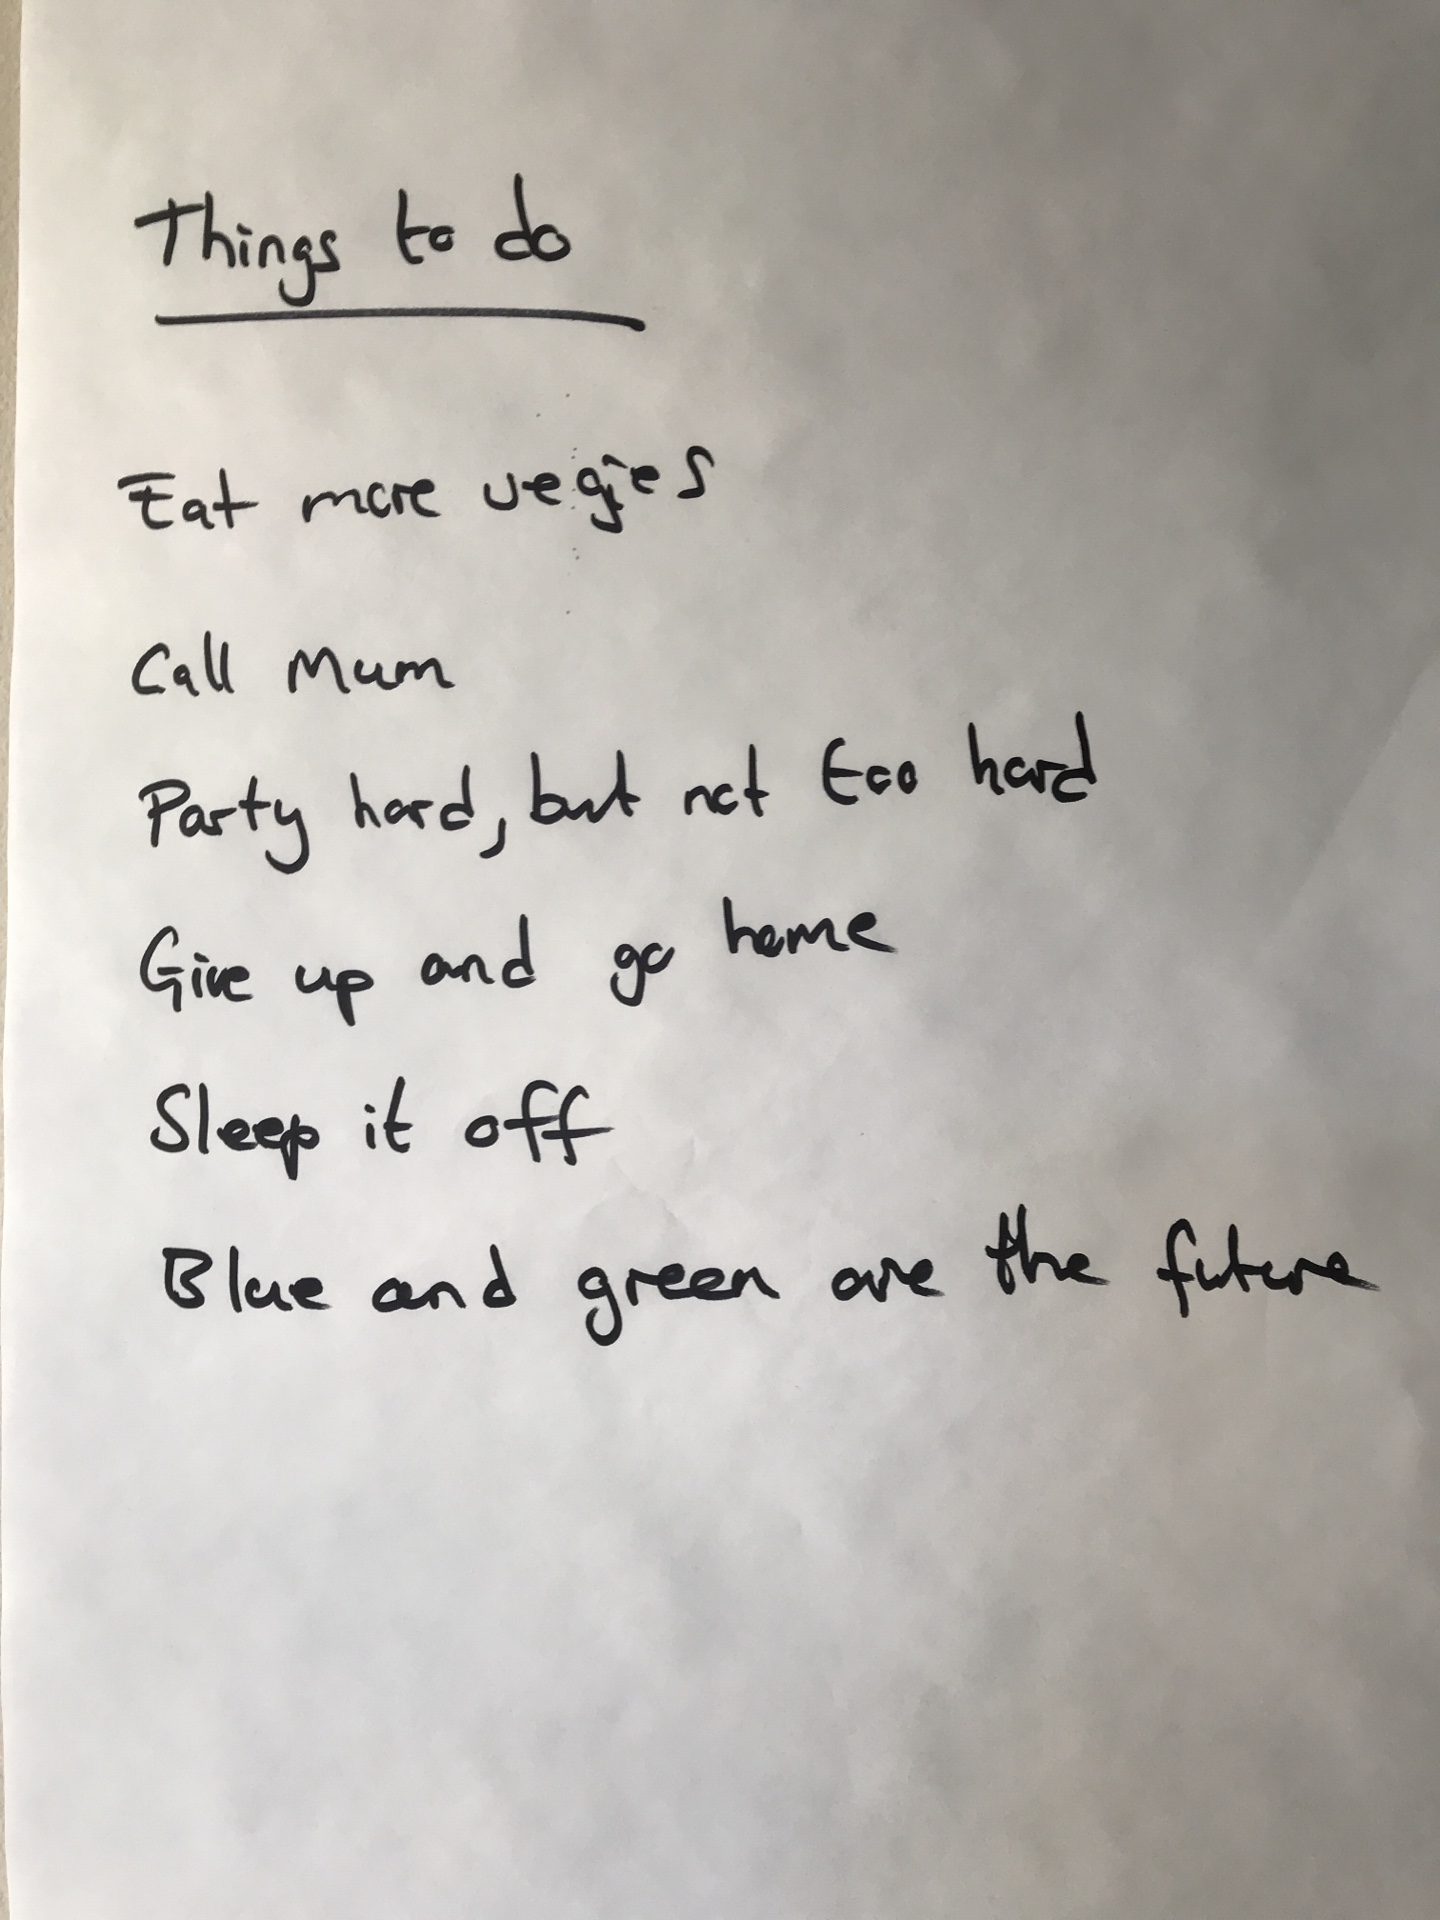 Things to do
Eat more vegies
Call Mum
Party hard, but not too hard
Give up and go home
Sleep it off
Blue and green are the future